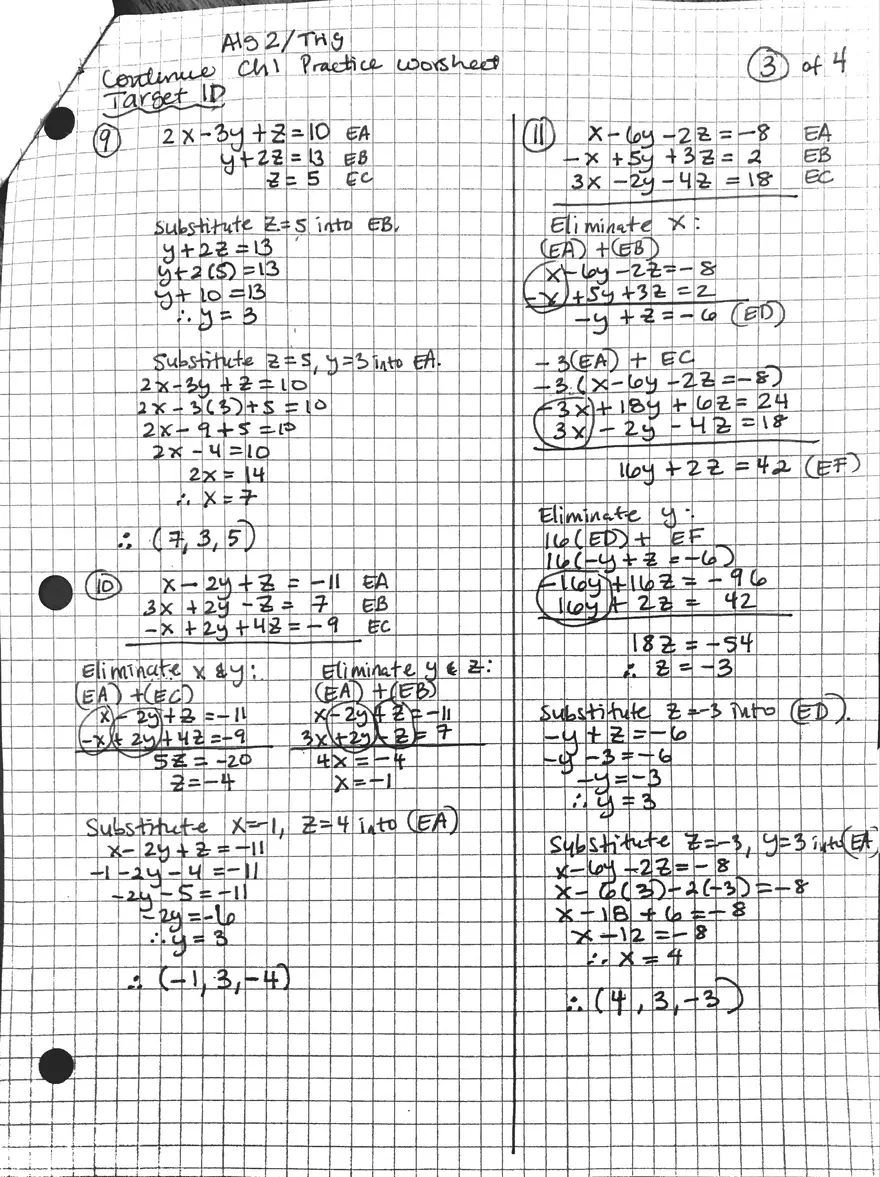 Alg 2/Trig
Continue Ch1 Practice Worsheet
3 of 4
Target 1D
9 2x-3y+z=10 EA
y+2z=13 EB
z=5 EC
Substitute z=5 into EB.
y+2z=13
y+2(5)=13
y+10=13
∴ y=3
Substitute z=5, y=3 into EA.
2x-3y+z=10
2x-3(3)+5=10
2x-9+5=10
2x-4=10
2x=14
∴ x=7
∴ (7,3,5)
10 x-2y+z=-11 EA
3x+2y-z=7 EB
-x+2y+4z=-9 EC
Eliminate x & y:
(EA)+(EC)
x-2y+z=-11
-x+2y+4z=-9
5z=-20
z=-4
Eliminate y & z:
(EA)+(EB)
x-2y+z=-11
3x+2y-z=7
4x=-4
x=-1
Substitute x=-1, z=4 into (EA)
x-2y+z=-11
-1-2y-4=-11
-2y-5=-11
-2y=-6
∴ y=3
∴ (-1,3,-4)
11 x-6y-2z=-8 EA
-x+5y+3z=2 EB
3x-2y-4z=18 EC
Eliminate x:
(EA)+(EB)
x-6y-2z=-8
-x+5y+3z=2
-y+z=-6 (ED)
-3(EA)+EC
-3(x-6y-2z=-8)
-3x+18y+6z=24
3x-2y-4z=18
16y+2z=42 (EF)
Eliminate y:
16(ED)+EF
16(-y+z=-6)
-16y+16z=-96
16y+2z=42
18z=-54
∴ z=-3
Substitute z=-3 into (ED).
-y+z=-6
-y-3=-6
-y=-3
∴ y=3
Substitute z=-3, y=3 into (EA)
x-6y-2z=-8
x-6(3)-2(-3)=-8
x-18+6=-8
x-12=-8
∴ x=4
∴ (4,3,-3)